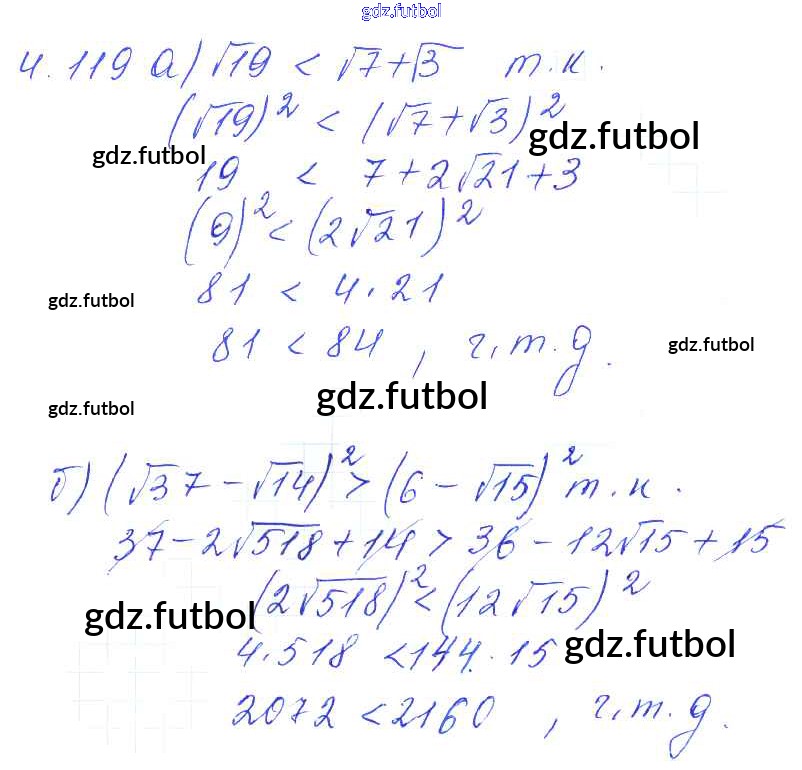 gdz.futbol
4.119 а) √19 < √7+√3 т.к.
(√19)² < (√7+√3)²
gdz.futbol
gdz.futbol
19 < 7+2√21+3
(9)² < (2√21)²
gdz.futbol
81 < 4·21
81 < 84, ч.т.д.
gdz.futbol
gdz.futbol
gdz.futbol
б) (√37-√14)² > (6-√15)² т.к.
37-2√518+14 > 36-12√15+15
(2√518)² < (12√15)²
gdz.futbol
gdz.futbol
4·518 < 144·15
2072 < 2160, ч.т.д.